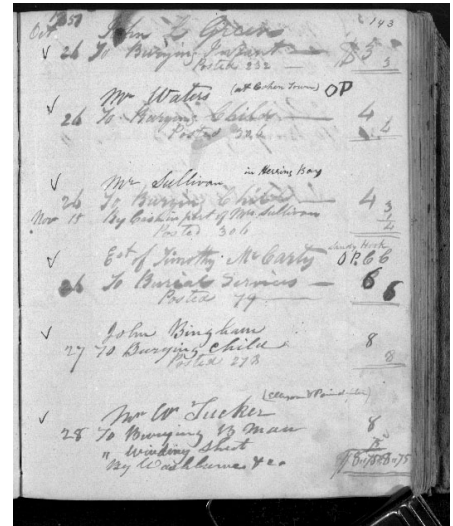 1857 143
Oct. John Green
√ 26 To Burying Infant — $5
Posted 232 — 5
√ Mr Waters (at Cohen Town) OP
26 To Burying Child — 4
Posted 4
√ Mr Sullivan in Herring Bay
26 To Burying Child — 4
Nov 15 By Cash in part of Mr Sullivan
Posted 306
√ Est of Timothy McCarty Sandy Hook OP. 6
26 To Burial Services — 6
Posted 79 — 6
√ John Bingham
27 To Burying Child 8
Posted 273 8
√ Mr Wm Tucker
28 To Burying B Man 8
" Winding Sheet 75
By Washburne &c. $8.75